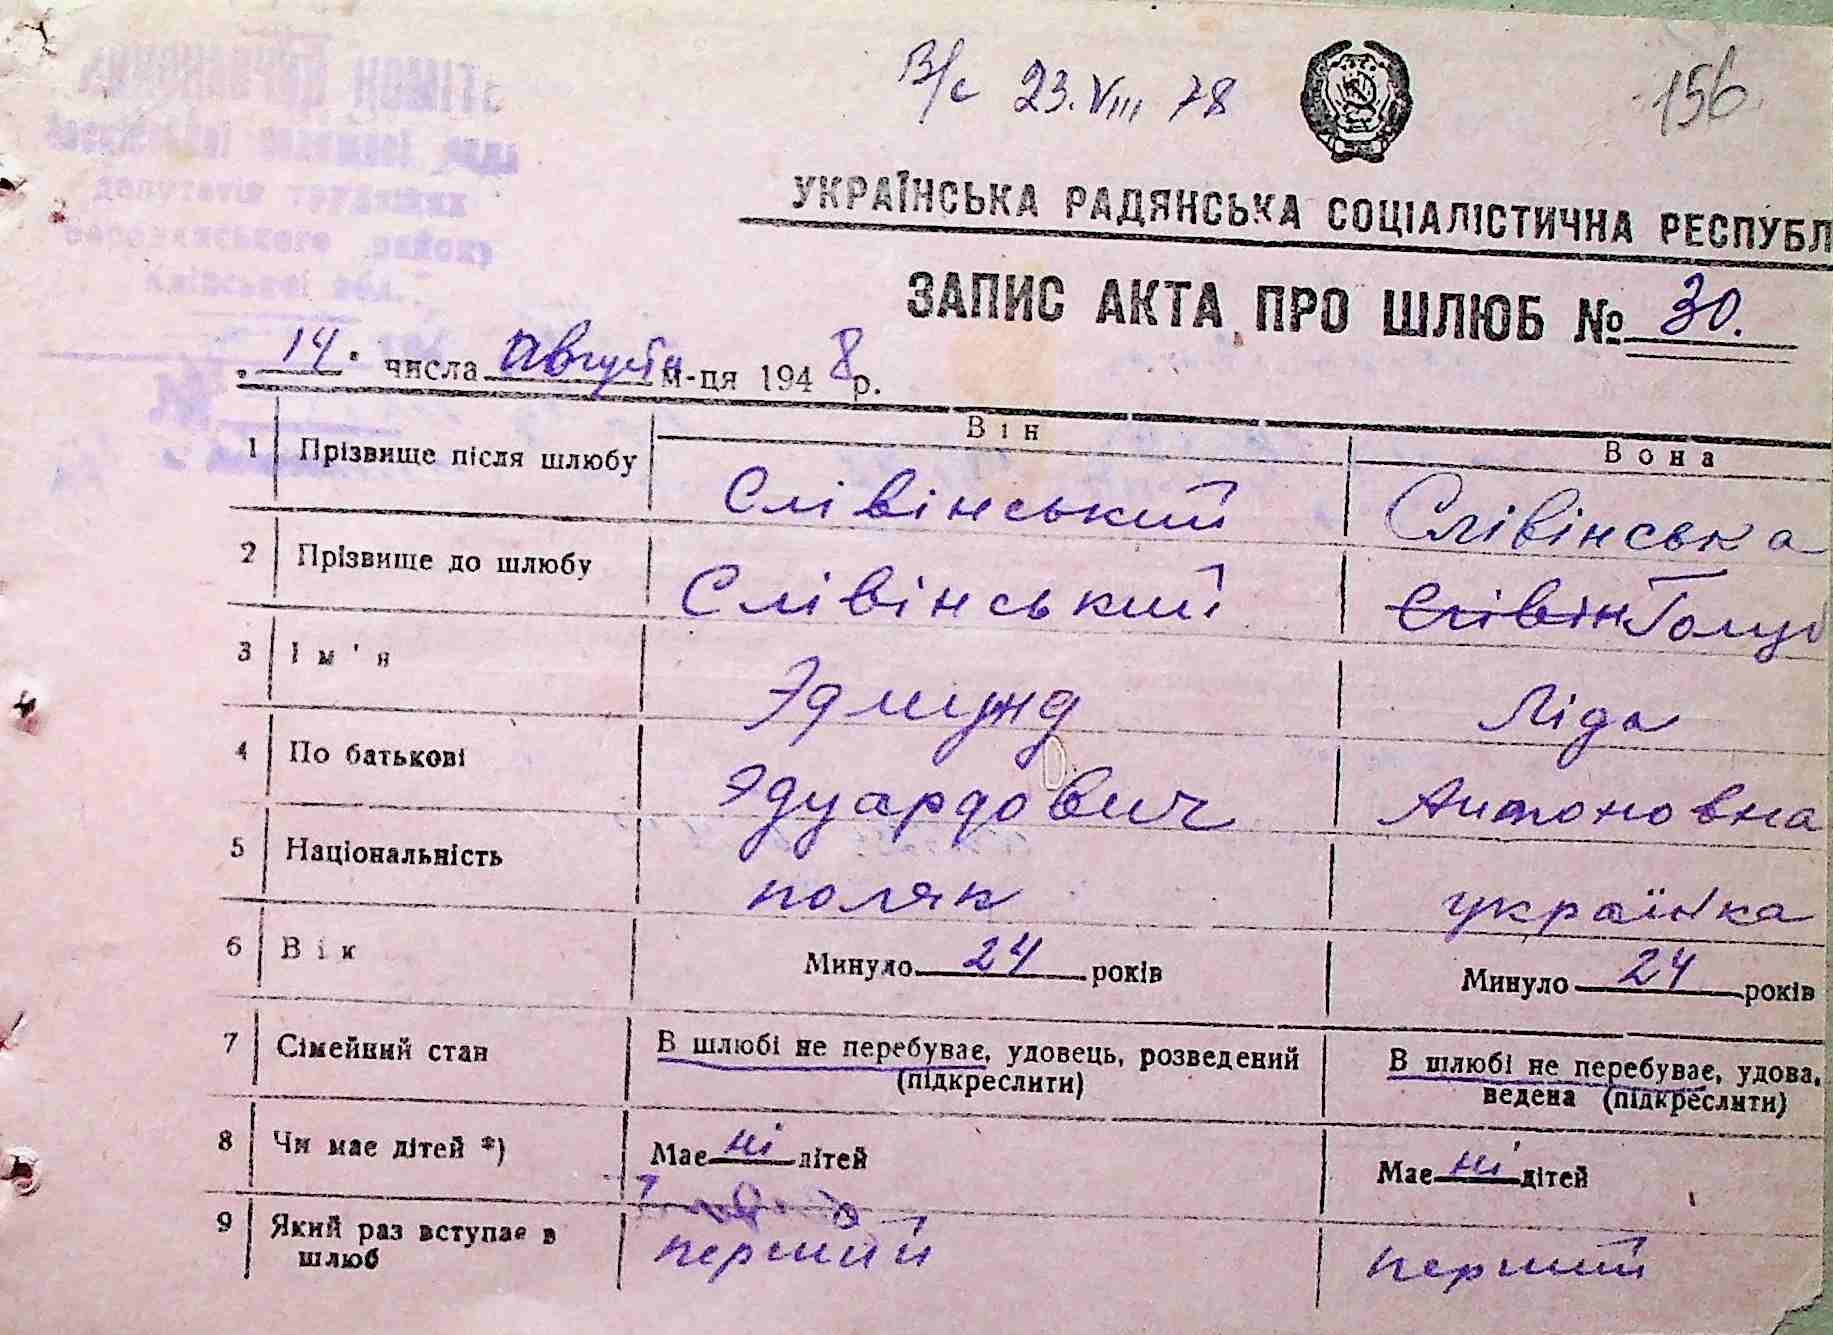 В/с 23.VIII 78
156
УКРАЇНСЬКА РАДЯНСЬКА СОЦІАЛІСТИЧНА РЕСПУБЛ
ЗАПИС АКТА ПРО ШЛЮБ № 30.
депутатів трудящих
району
Київської обл.
14 числа Августа м-ця 1948 р.
Він Вона
1 Прізвище після шлюбу Слівінський Слівінська
2 Прізвище до шлюбу Слівінський Слівін Голуб
3 Ім'я Эдмунд Ліда
4 По батькові Эдуардович Антоновна
5 Національність поляк українка
6 Вік Минуло 24 років Минуло 24 років
7 Сімейний стан В шлюбі не перебуває, удовець, розведений В шлюбі не перебуває, удова,
(підкреслити) ведена (підкреслити)
8 Чи має дітей *) Має ні дітей Має ні дітей
9 Який раз вступає в перший перший
шлюб